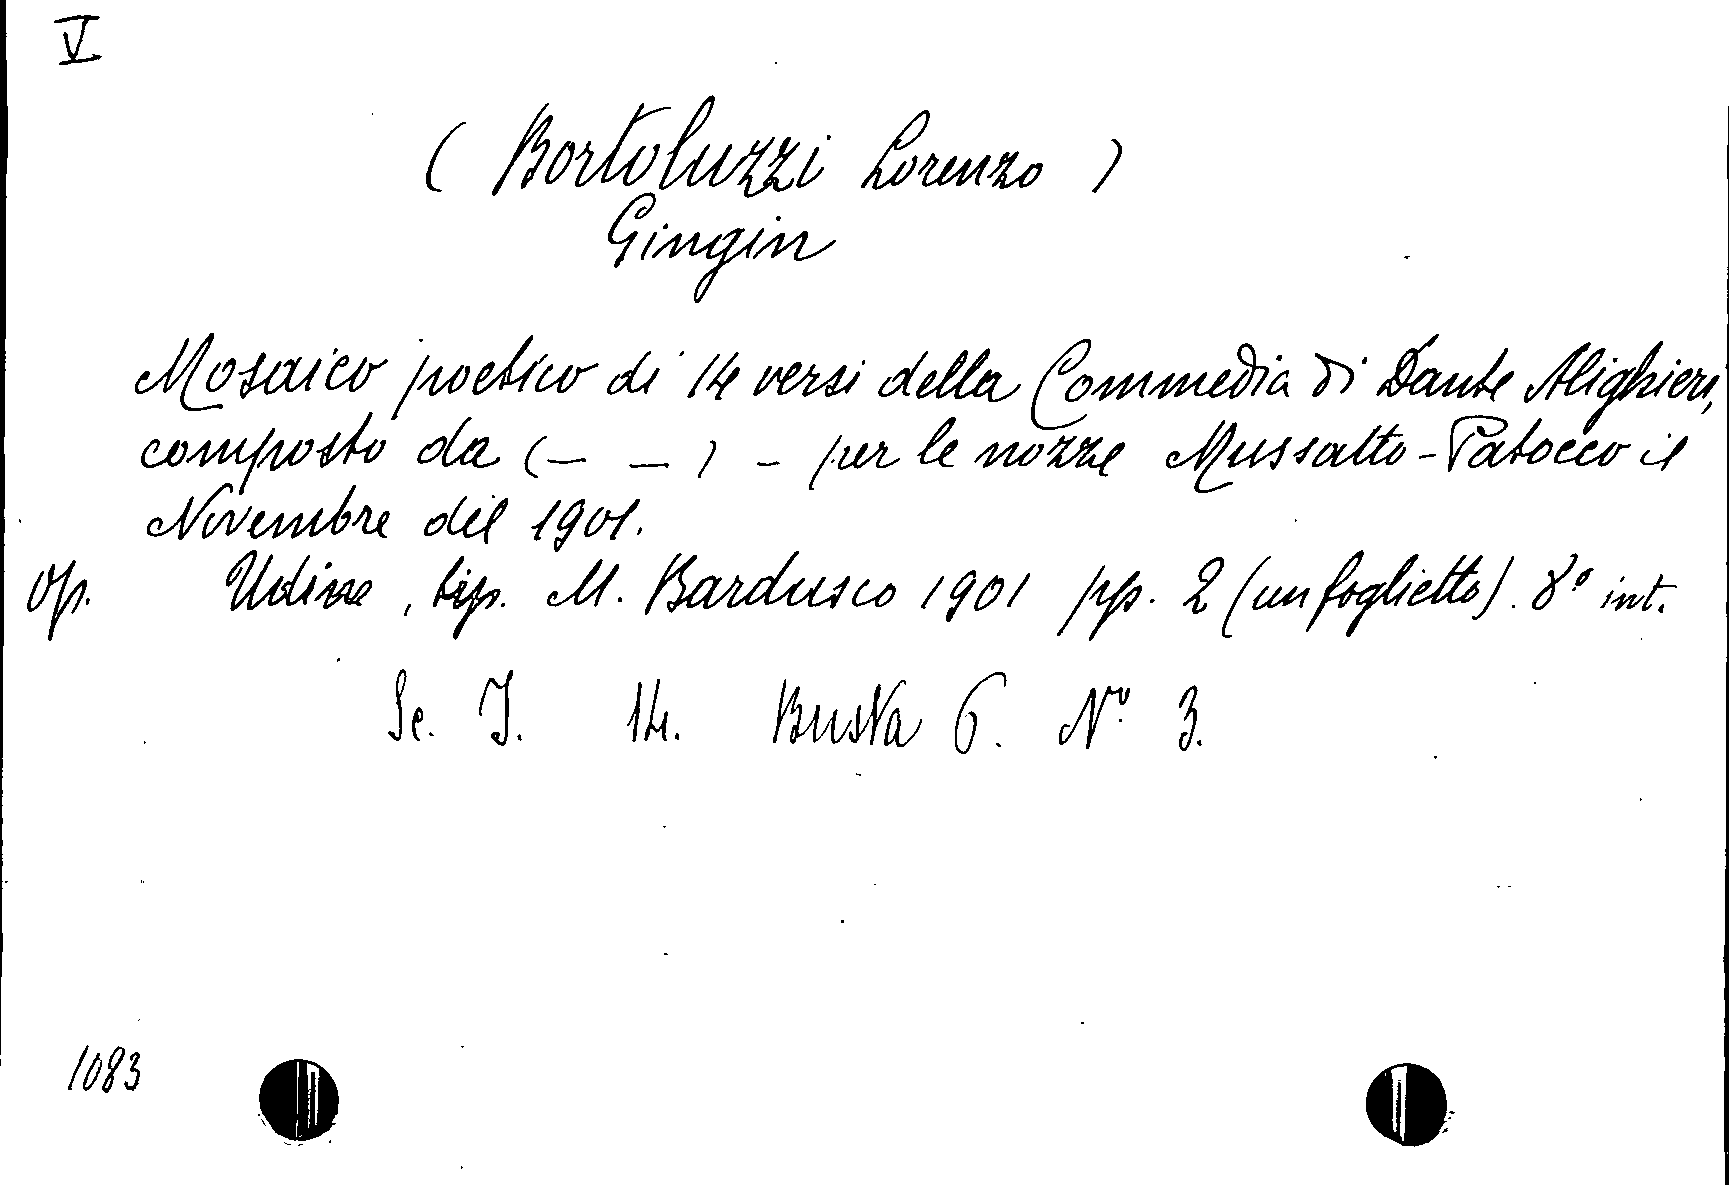 V
( Bortoluzzi Lorenzo )
Gingin
Mosaico poetico di 14 versi della Commedia di Dante Alighieri,
composto da ( — — ) – per le nozze Mussatto-Patocco il
Novembre del 1901.
op. Udine, tip. M. Bardusco 1901 pp. 2 (un foglietto). 8° int.
Sc. I. 14. Busta 6. N° 3.
1083